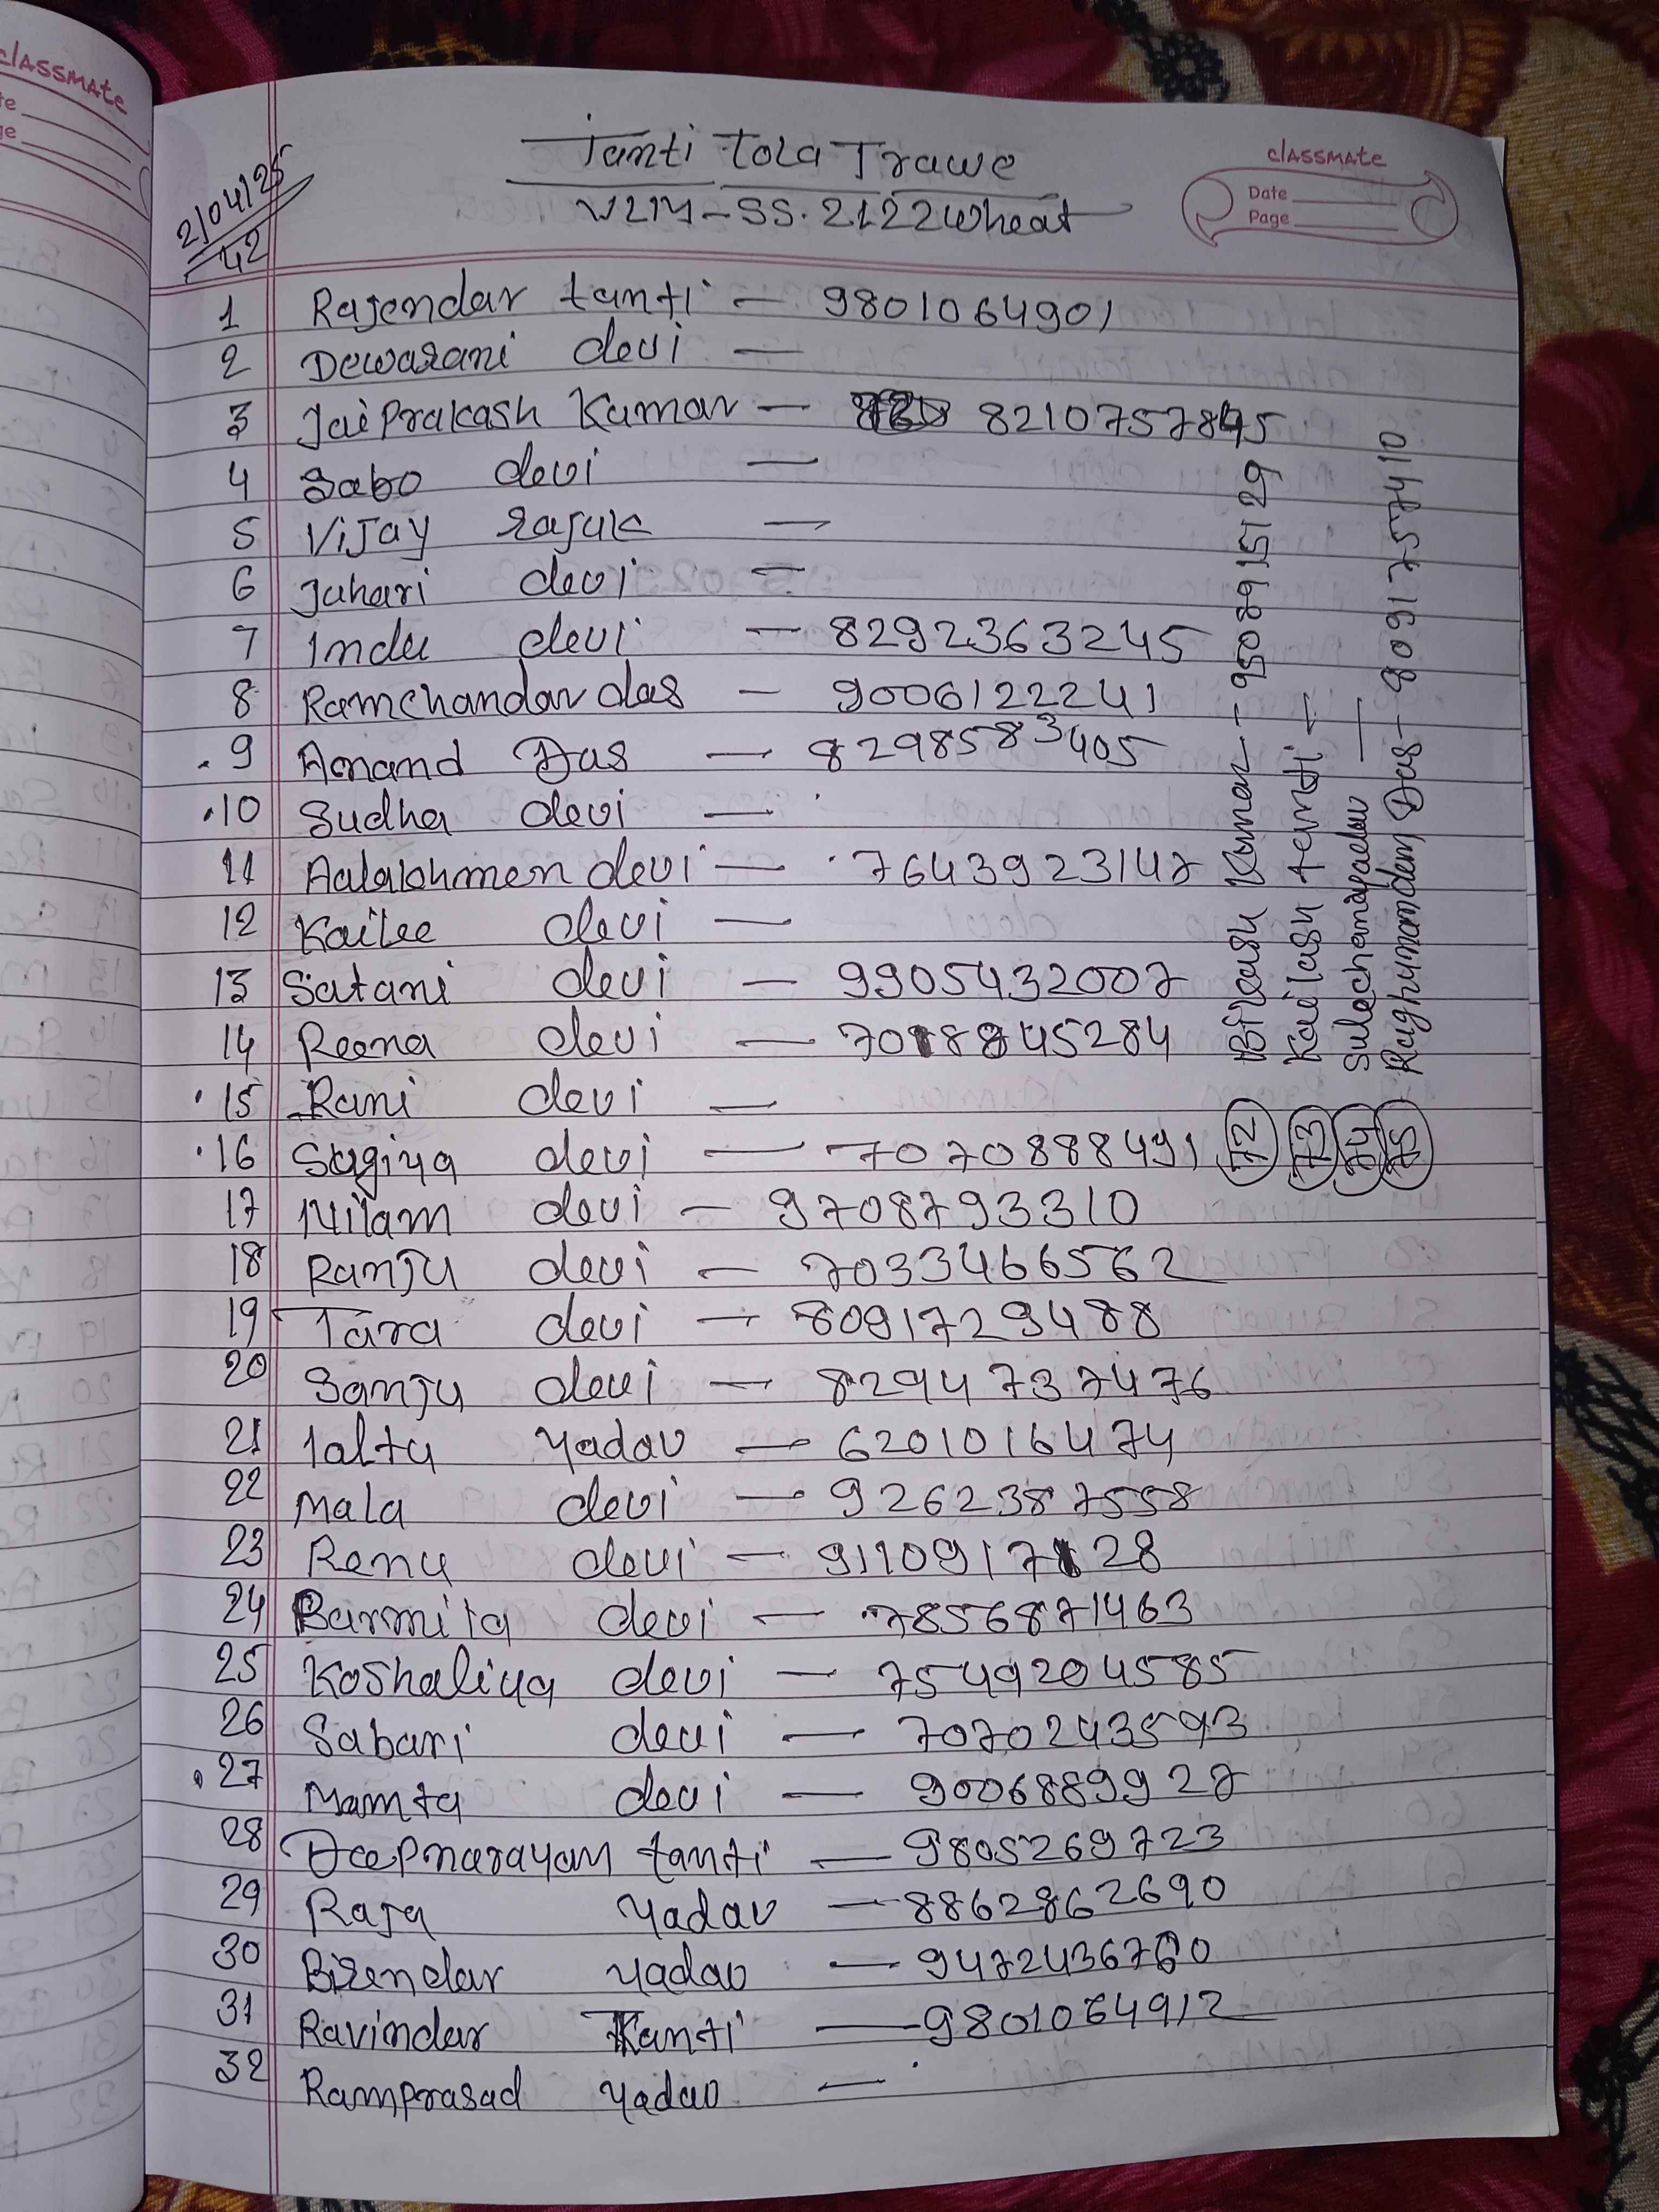 classmate
Date
Page
2/04/25
42
Tanti Tola Trawe
SS. 2122 Wheat
1 Rajendar tanti — 9801064901
2 Dewarani devi —
3 JaiPrakash Kumar — 8210757845
4 Sabo devi —
5 Vijay rajak —
6 Juhari devi —
7 Indu devi — 8292363245
8 Ramchandar das — 9006122241
9 Anand Das — 8298583405
10 Sudha devi —
11 Aalakhmen devi — 7643923147
12 Kailee devi —
13 Satani devi — 9905432007
14 Reena devi — 7018845284
15 Rani devi —
16 Sugiya devi — 7070888491
17 Nilam devi — 9708793310
18 Ranju devi — 7033466562
19 Tara devi — 8091729488
20 Sanju devi — 8294737476
21 lalty Yadav — 6201016474
22 Mala devi — 9262387558
23 Renu devi — 9110917128
24 Barmila devi — 7856871463
25 Koshaliya devi — 7549204585
26 Sabari devi — 7070243593
27 Mamta devi — 9006889927
28 Deepnarayan tanti — 9805269723
29 Raja Yadav — 8862862690
30 Birendar Yadav — 9472436760
31 Ravindar Tanti — 9801064912
32 Ramprasad Yadav —
72 Bikash Kumar — 9508915129
73 Kailash tanti —
74
75 Raghunandan Das — 8091757410